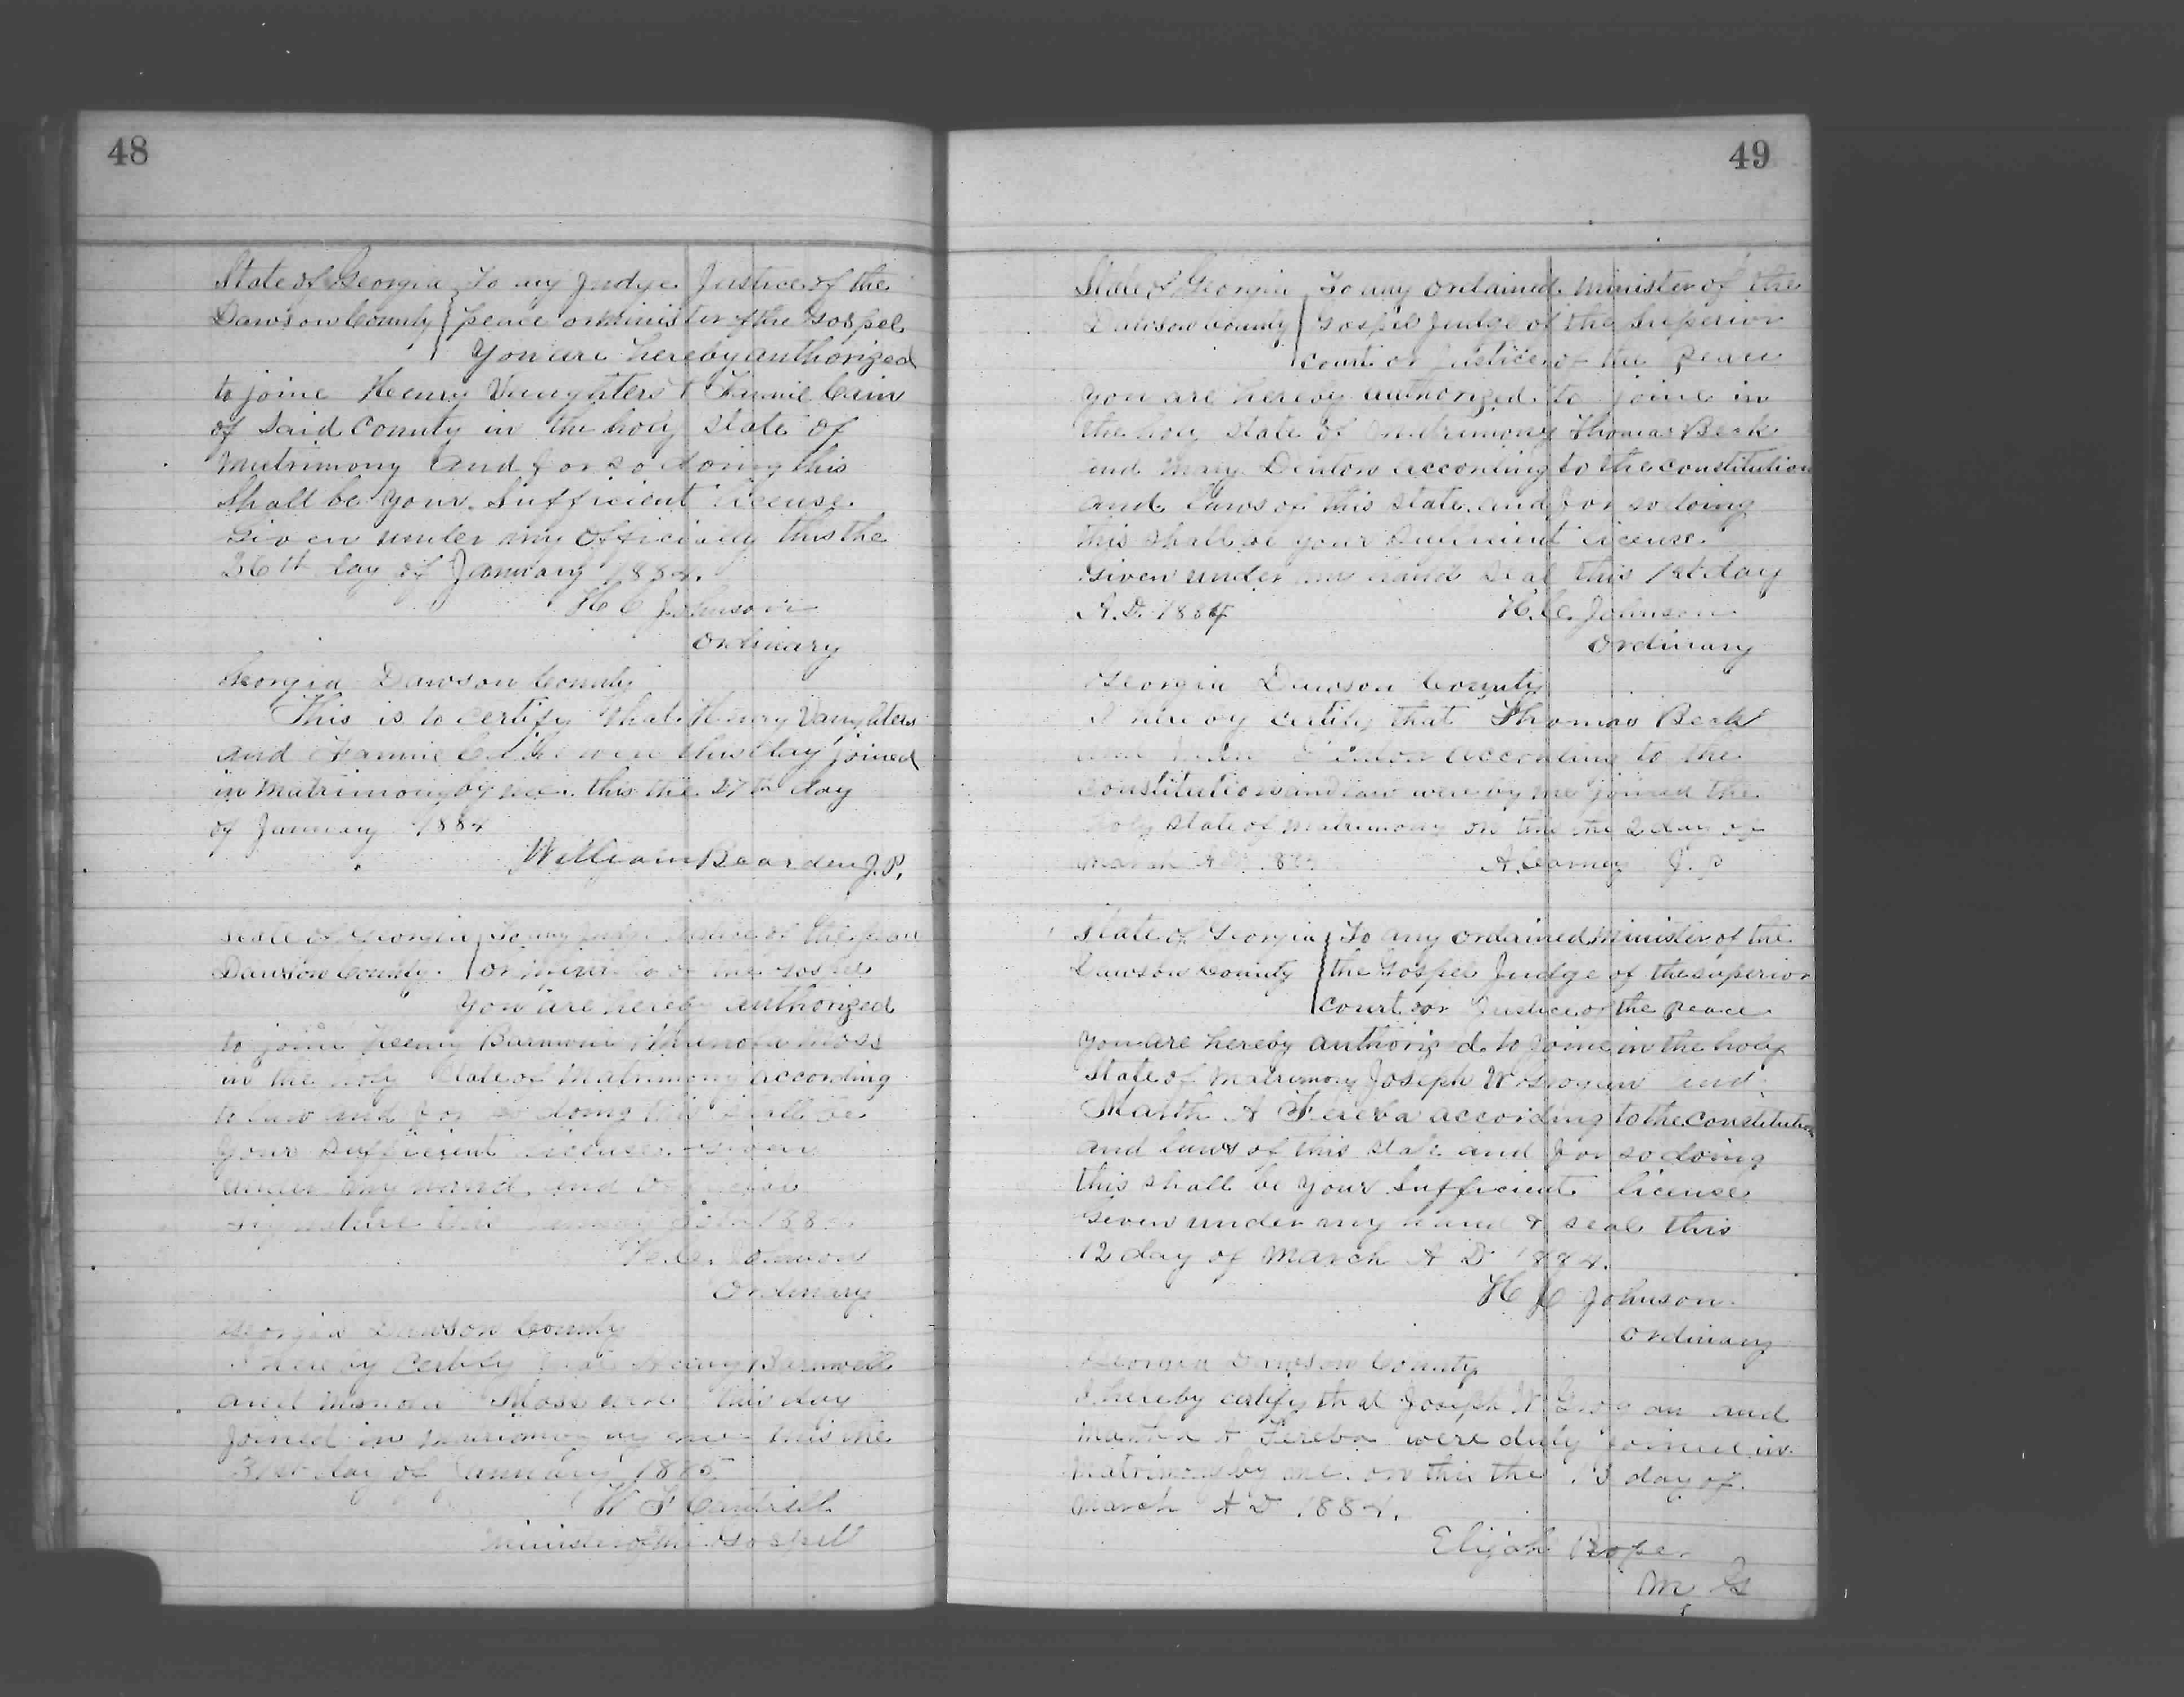 48
State of Georgia To any Judge Justice of the
Dawson County peace or Minister of the Gospel
You are hereby authorized
to joine Henry Vaughters & Fannie Cain
of Said County in the holy State of
Matrimony and for so doing this
Shall be your Sufficient license.
Given under my officially this the
26th day of January 1884.
H C Johnson
Ordinary
Georgia Dawson County
This is to certify that Henry Vaughters
and Fannie were this day joined
in Matrimony by me. this the 27th day
of January 1884
William Bearden J.P.
State of Georgia To any Judge Justice of the peace
Dawson County. or Minister of the Gospel
You are hereby authorized
to joine Henry Moss
in the holy State of Matrimony according
to law and for so doing this shall be
Your Sufficient license. Given
under my hand and official
signature this January 188
H.C. Johnson
Ordinary
Georgia Dawson County
I hereby Certify that Henry Barnwell
and Moss were this day
Joined in matrimony by me this the
31st day of January 1885
W F Cantrell
Minister of the Gospell
49
State of Georgia To any ordained minister of the
Dawson County Gospel Judge of the Superior
Court or Justice of the peace
You are hereby authorized to joine in
the holy State of Matrimony Thomas Beck
and Mary Denton according to the constitution
and laws of this State and for so doing
this shall be your Sufficient license.
Given under my hand Seal this 1st day
A.D. 1884 H.C. Johnson
Ordinary
Georgia Dawson County
I hereby certify that Thomas Beck
and Denton according to the
constitution and law were by me joined the
holy State of matrimony on the 2 day of
March A.D. J. P
State of Georgia To any ordained Minister of the
Dawson County the Gospel Judge of the superior
court or Justice of the peace
You are hereby authorized to joine in the holy
State of Matrimony Joseph W Grogan and
Martha A Fereba according to the constitution
and laws of this State and for so doing
this shall be your Sufficient license
Given under my hand & seal this
12 day of March A D 1884.
H C Johnson.
Ordinary
Georgia Dawson County
I hereby certify that Joseph W Grogan and
Martha A Fereba were duly joined in
Matrimony by me. on this the 13 day of.
March A D 1884.
Elijah Rope
M G